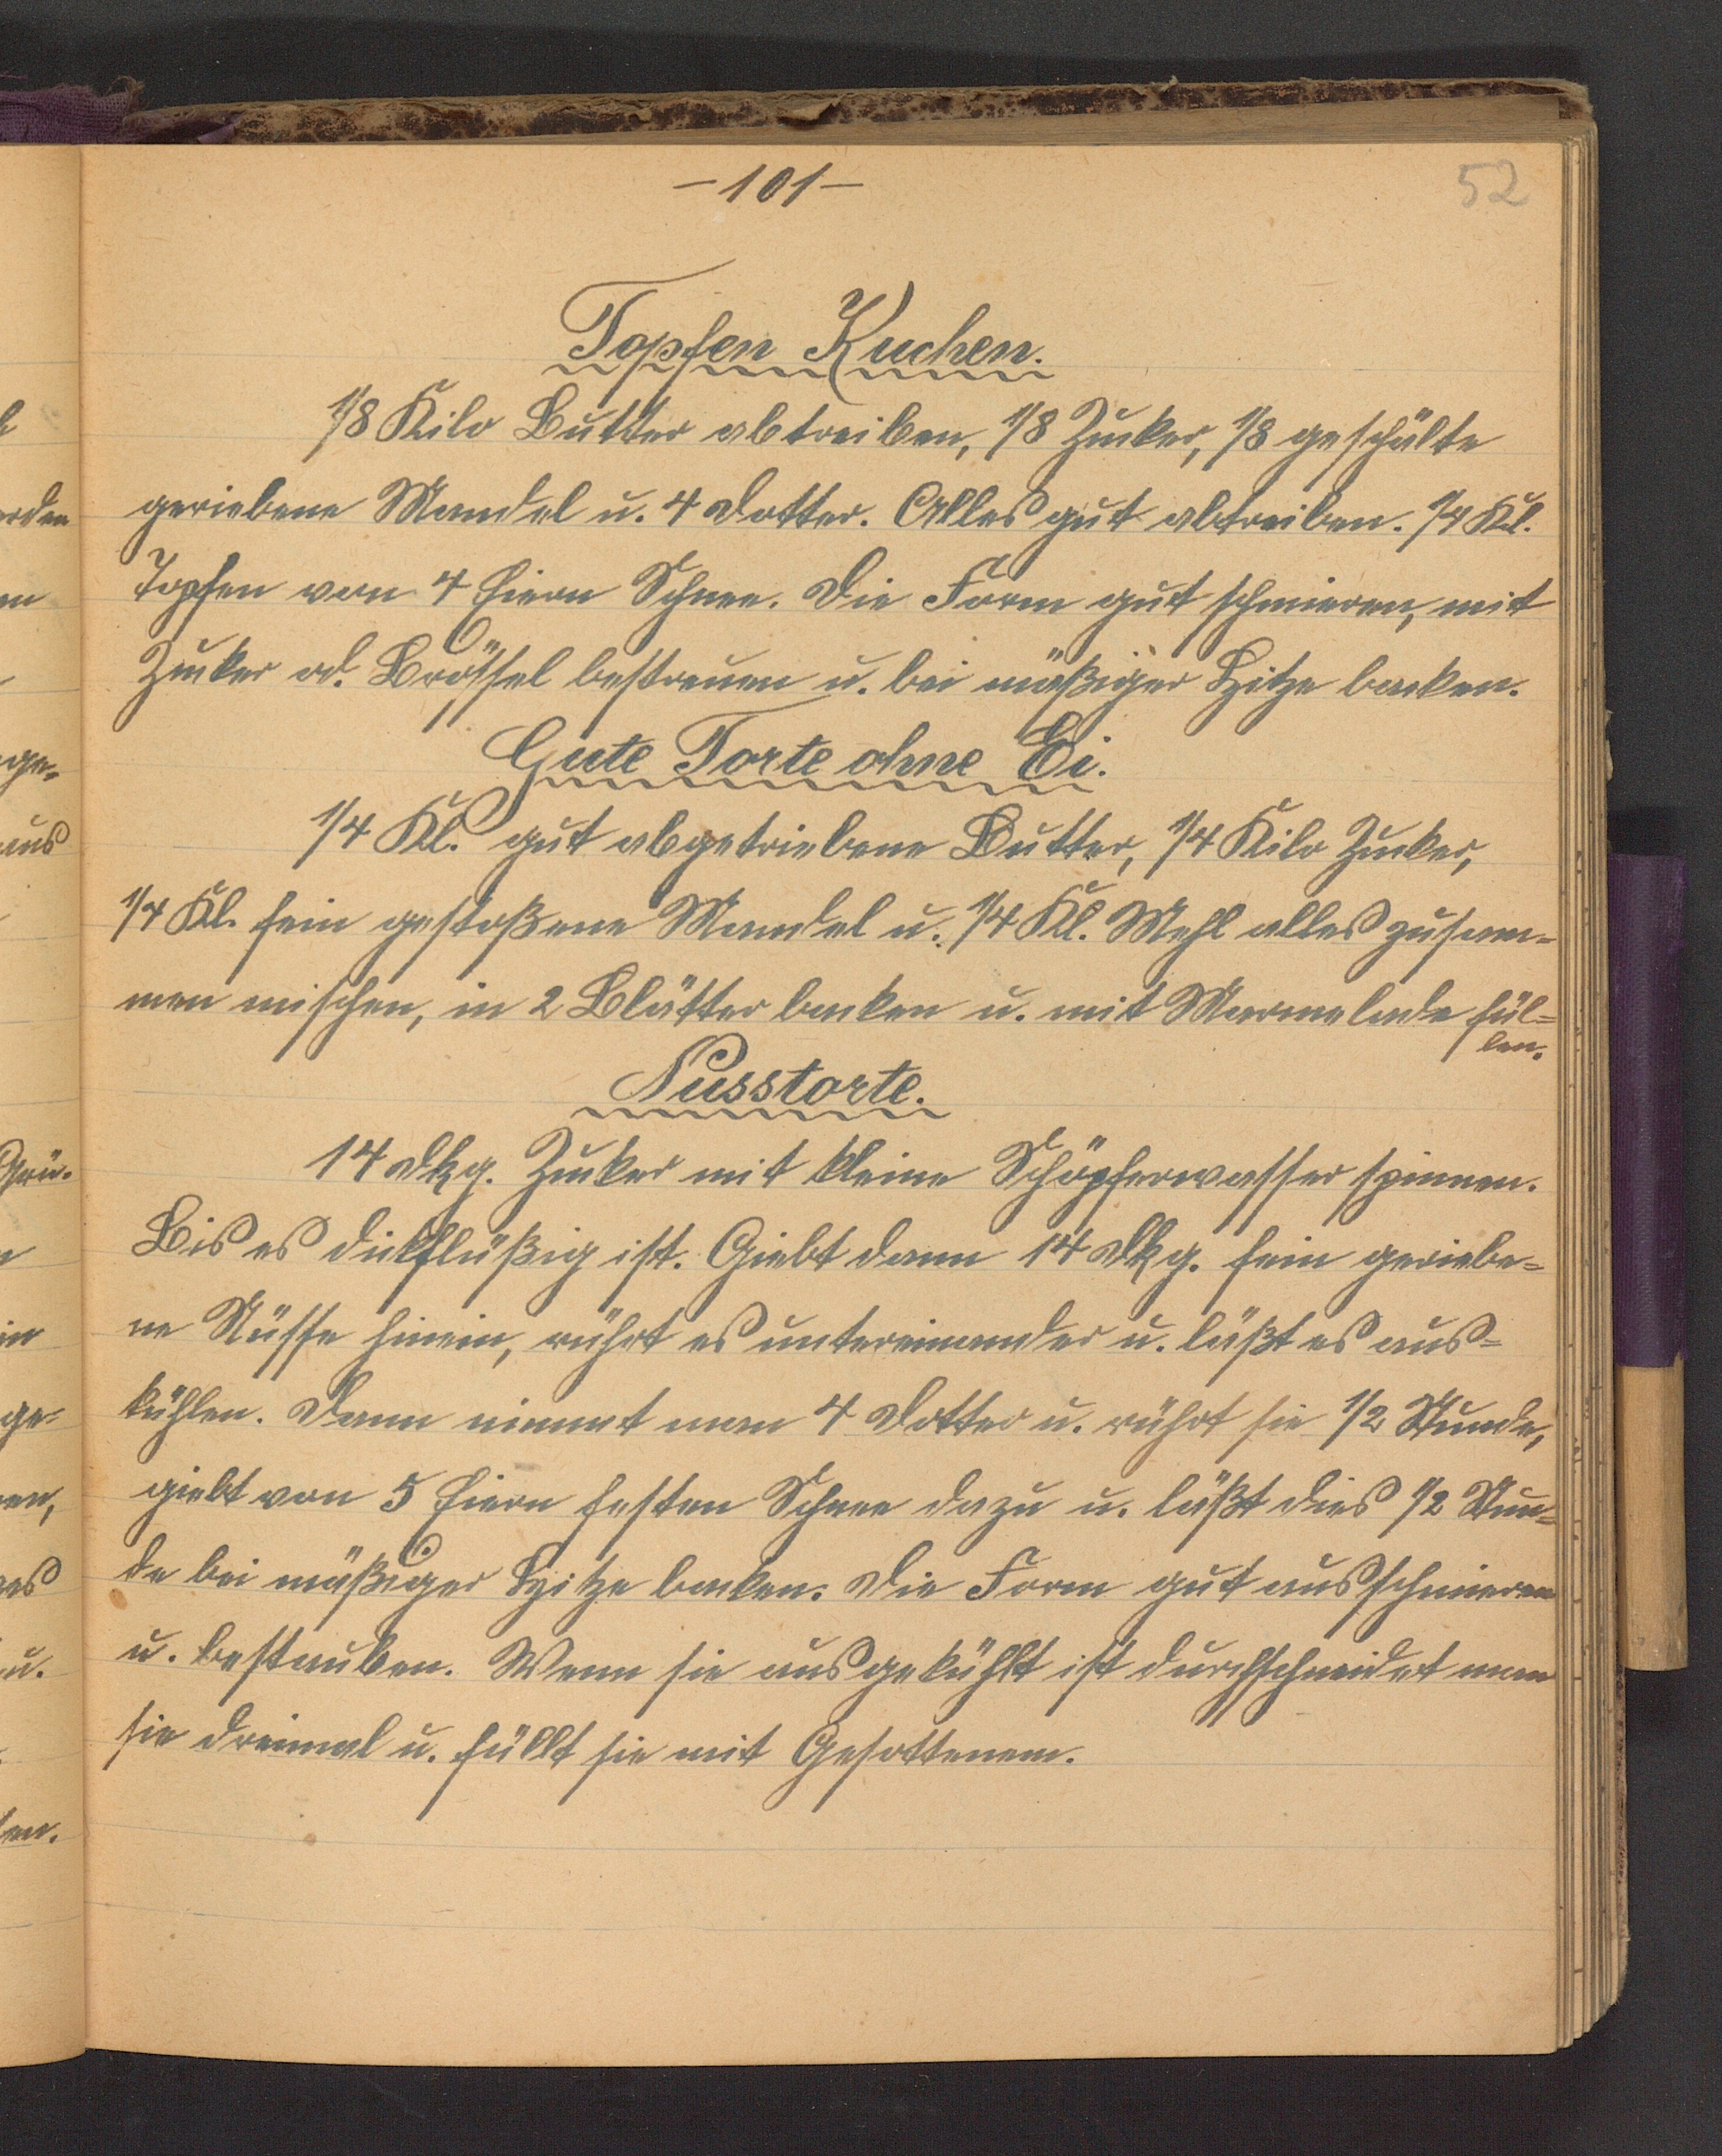 -101-
52
Topfen Kuchen.
1/8 Kilo Butter abtreiben, 1/8 Zucker, 1/8 geschälte
geriebene Mandel u. 4 Dotter. Alles gut abtreiben. 1/4 Kl.
Topfen von 4 Eiern Schnee. Die Form gut schmieren, mit
Zucker od. Brössel bestreuen u. bei mäßiger Hitze backen.
Gute Torte ohne Ei.
1/4 Kl. gut abgetriebene Butter, 1/4 Kilo Zucker,
1/4 Kl. fein gestoßene Mandel u. 1/4 Kl. Mehl alles zusam=
men mischen, in 2 Blätter backen u. mit Marmelade fül=
len.
Nusstorte.
14 Dkg. Zucker mit kleine Schöpferwasser spinnen.
Bis es dickflüßig ist. Giebt dann 14 Dkg. fein geriebe=
ne Nüsse hinein, rührt es untereinander u. läßt es aus=
kühlen. Dann nimmt man 4 Dotter u. rührt sie 1/2 Stunde,
giebt von 5 Eiern festen Schnee dazu u. läßt dies 1/2 Stun=
de bei mäßiger Hitze backen. Die Form gut ausschmieren
u. bestauben. Wenn sie ausgekühlt ist durchschneidet man
sie dreimal u. füllt sie mit Gesottenem.